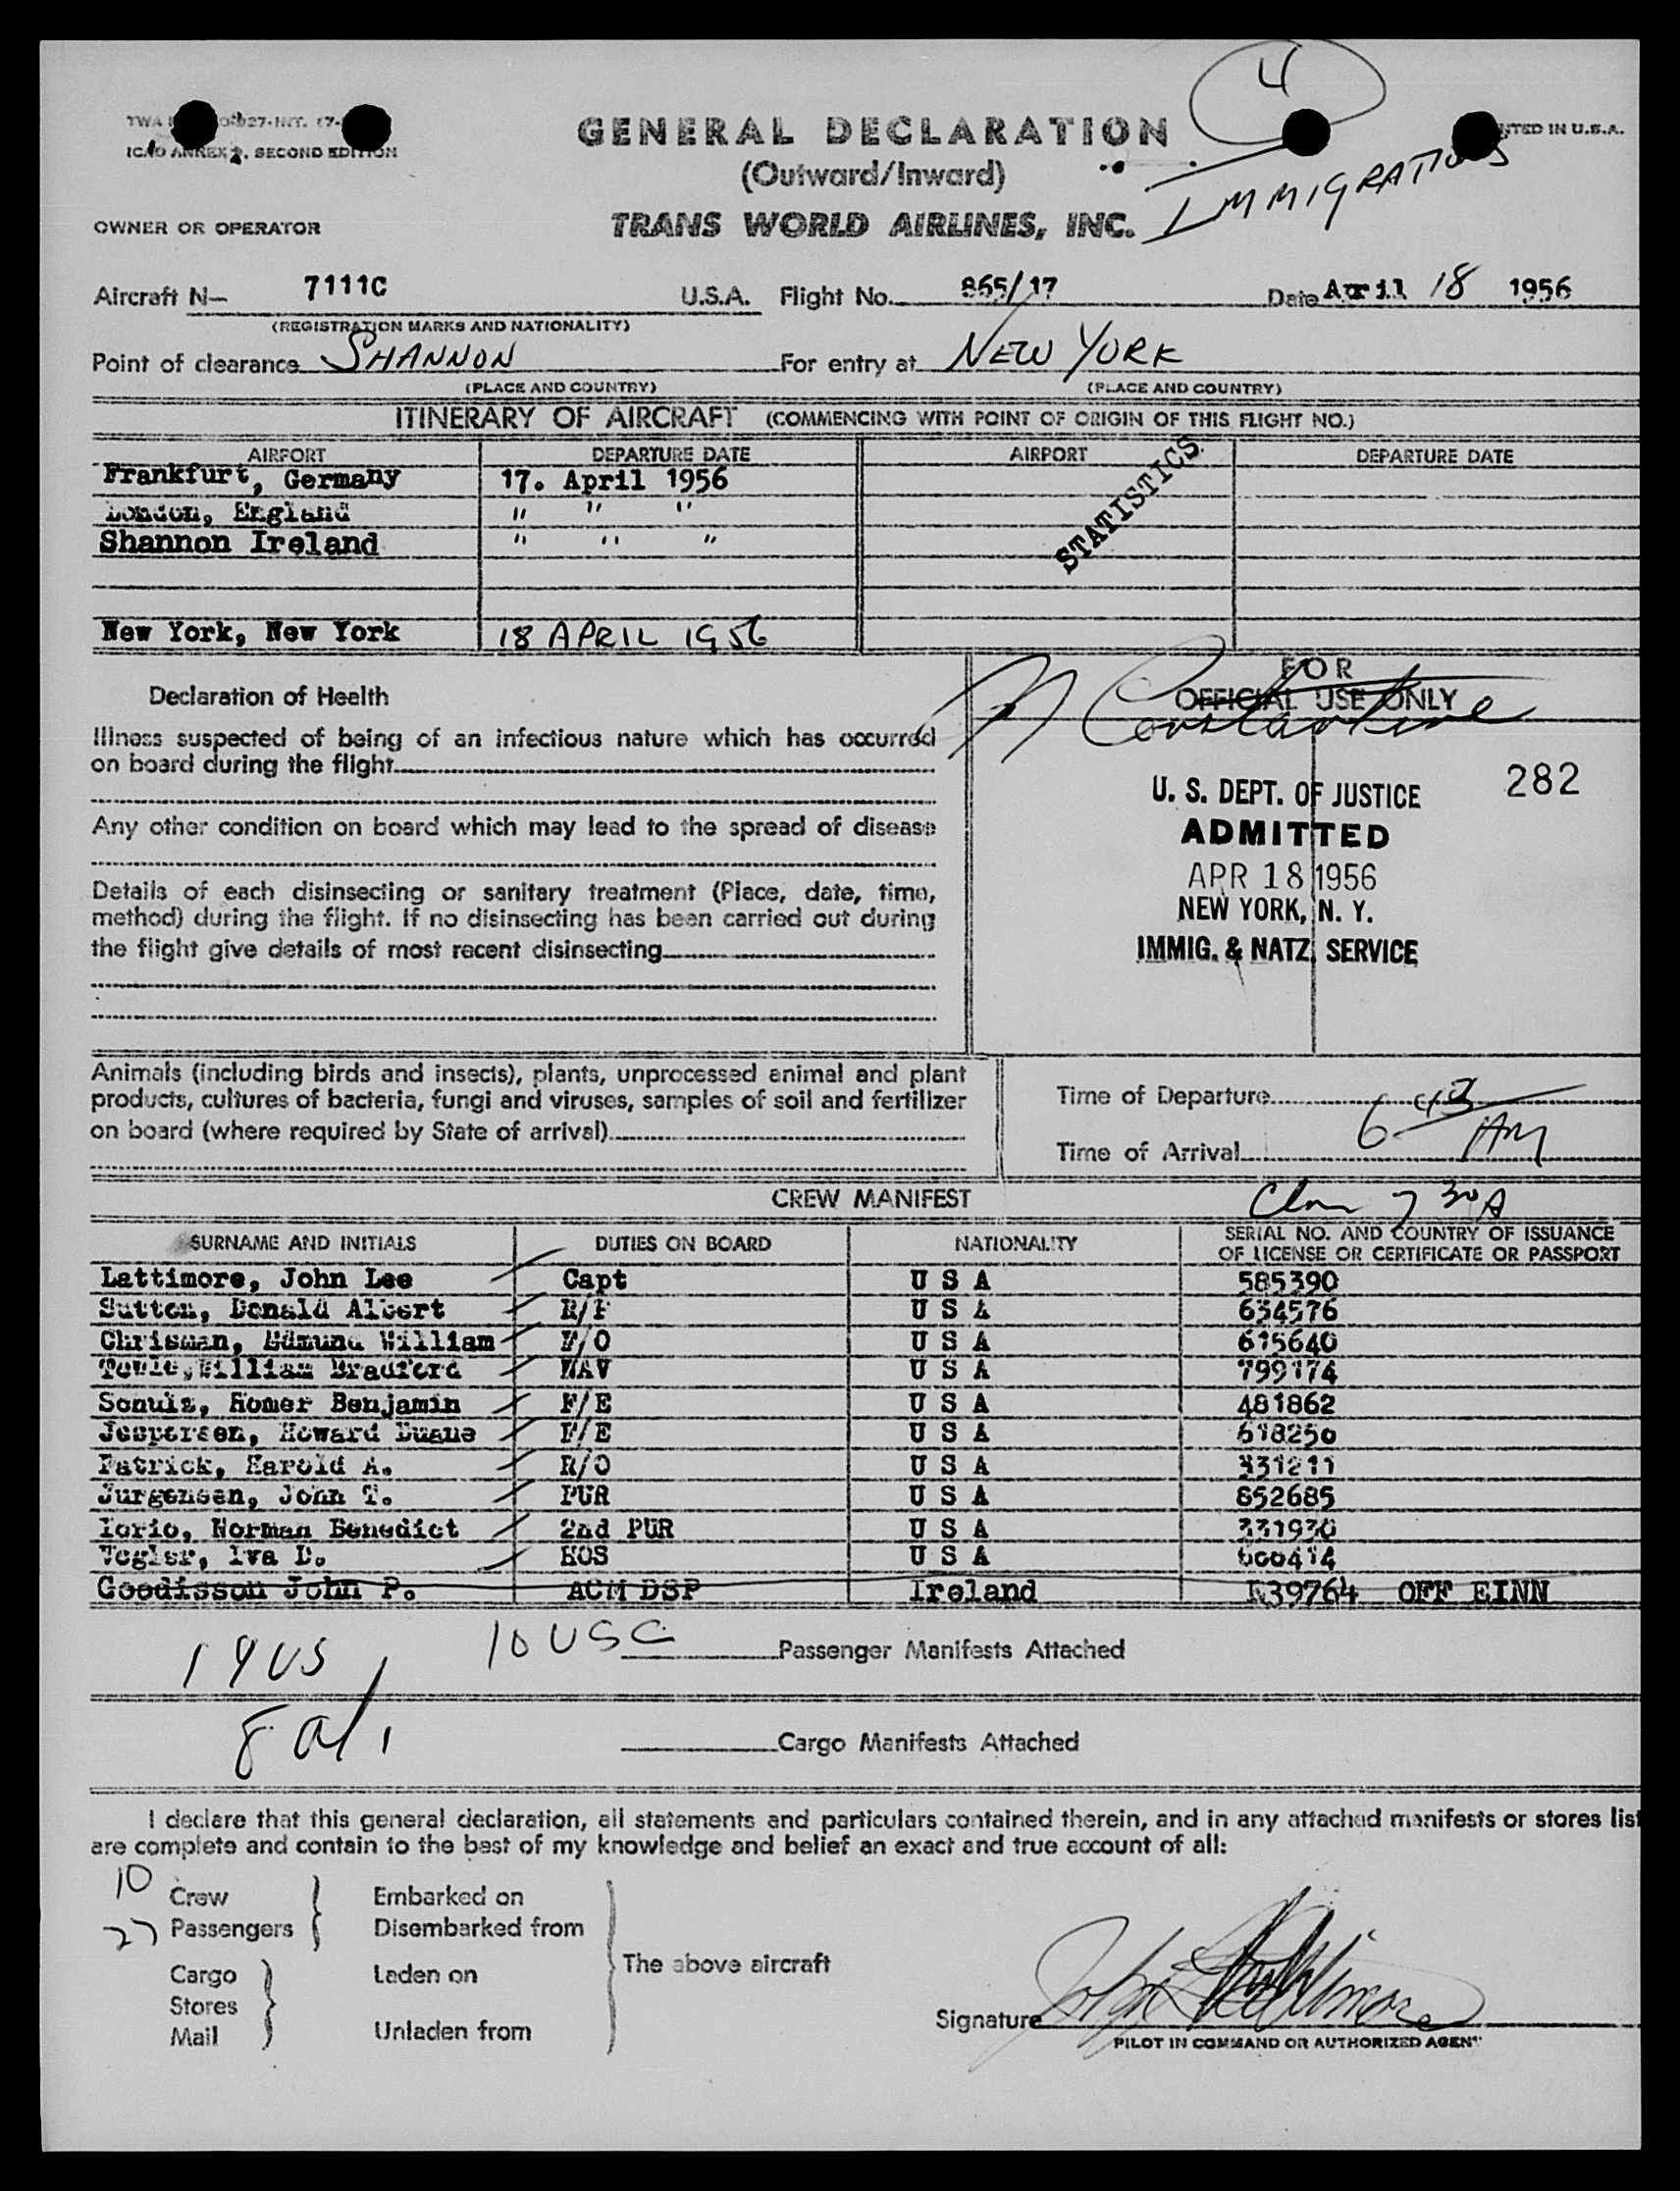 4
GENERAL DECLARATION
ICAO ANNEX 9, SECOND EDITION
IN U.S.A.
(Outward/Inward)
IMMIGRATIONS
OWNER OR OPERATOR
TRANS WORLD AIRLINES, INC.
Aircraft N- 7111C U.S.A. Flight No. 865/17 Date April 18 1956
(REGISTRATION MARKS AND NATIONALITY)
Point of clearance SHANNON For entry at NEW YORK
(PLACE AND COUNTRY) (PLACE AND COUNTRY)
ITINERARY OF AIRCRAFT (COMMENCING WITH POINT OF ORIGIN OF THIS FLIGHT NO.)
AIRPORT DEPARTURE DATE AIRPORT DEPARTURE DATE
Frankfurt, Germany 17. April 1956
London, England " " "
Shannon Ireland " " "
STATISTICS
New York, New York 18 APRIL 1956
FOR
Declaration of Health OFFICIAL USE ONLY
Constantine
Illness suspected of being of an infectious nature which has occurred
on board during the flight
U. S. DEPT. OF JUSTICE 282
Any other condition on board which may lead to the spread of disease
ADMITTED
APR 18 1956
Details of each disinsecting or sanitary treatment (Place, date, time,
method) during the flight. If no disinsecting has been carried out during
NEW YORK, N. Y.
the flight give details of most recent disinsecting
IMMIG. & NATZ. SERVICE
Animals (including birds and insects), plants, unprocessed animal and plant
products, cultures of bacteria, fungi and viruses, samples of soil and fertilizer
on board (where required by State of arrival)
Time of Departure
Time of Arrival 6 43 AM
CREW MANIFEST
7 30 A
SURNAME AND INITIALS DUTIES ON BOARD NATIONALITY SERIAL NO. AND COUNTRY OF ISSUANCE
OF LICENSE OR CERTIFICATE OR PASSPORT
Lattimore, John Lee Capt U S A 585390
Sutton, Donald Albert R/P U S A 634576
Chrisman, Edmund William F/O U S A 615640
William Bradford NAV U S A 799174
Homer Benjamin F/E U S A 481862
Jespersen, Howard Duane F/E U S A 618250
Patrick, Harold A. R/O U S A 331211
Jurgensen, John T. PUR U S A 852685
Iorio, Norman Benedict 2nd PUR U S A 331930
Vogler, Iva D. HOS U S A 600414
Goodisson John P. ACM DSP Ireland 39764 OFF EINN
19 US 10 USC Passenger Manifests Attached
8 al 1 Cargo Manifests Attached
I declare that this general declaration, all statements and particulars contained therein, and in any attached manifests or stores list
are complete and contain to the best of my knowledge and belief an exact and true account of all:
10 Crew Embarked on
27 Passengers Disembarked from
The above aircraft
Cargo Laden on
Stores
Mail Unladen from
Signature John Lee Lattimore
PILOT IN COMMAND OR AUTHORIZED AGENT